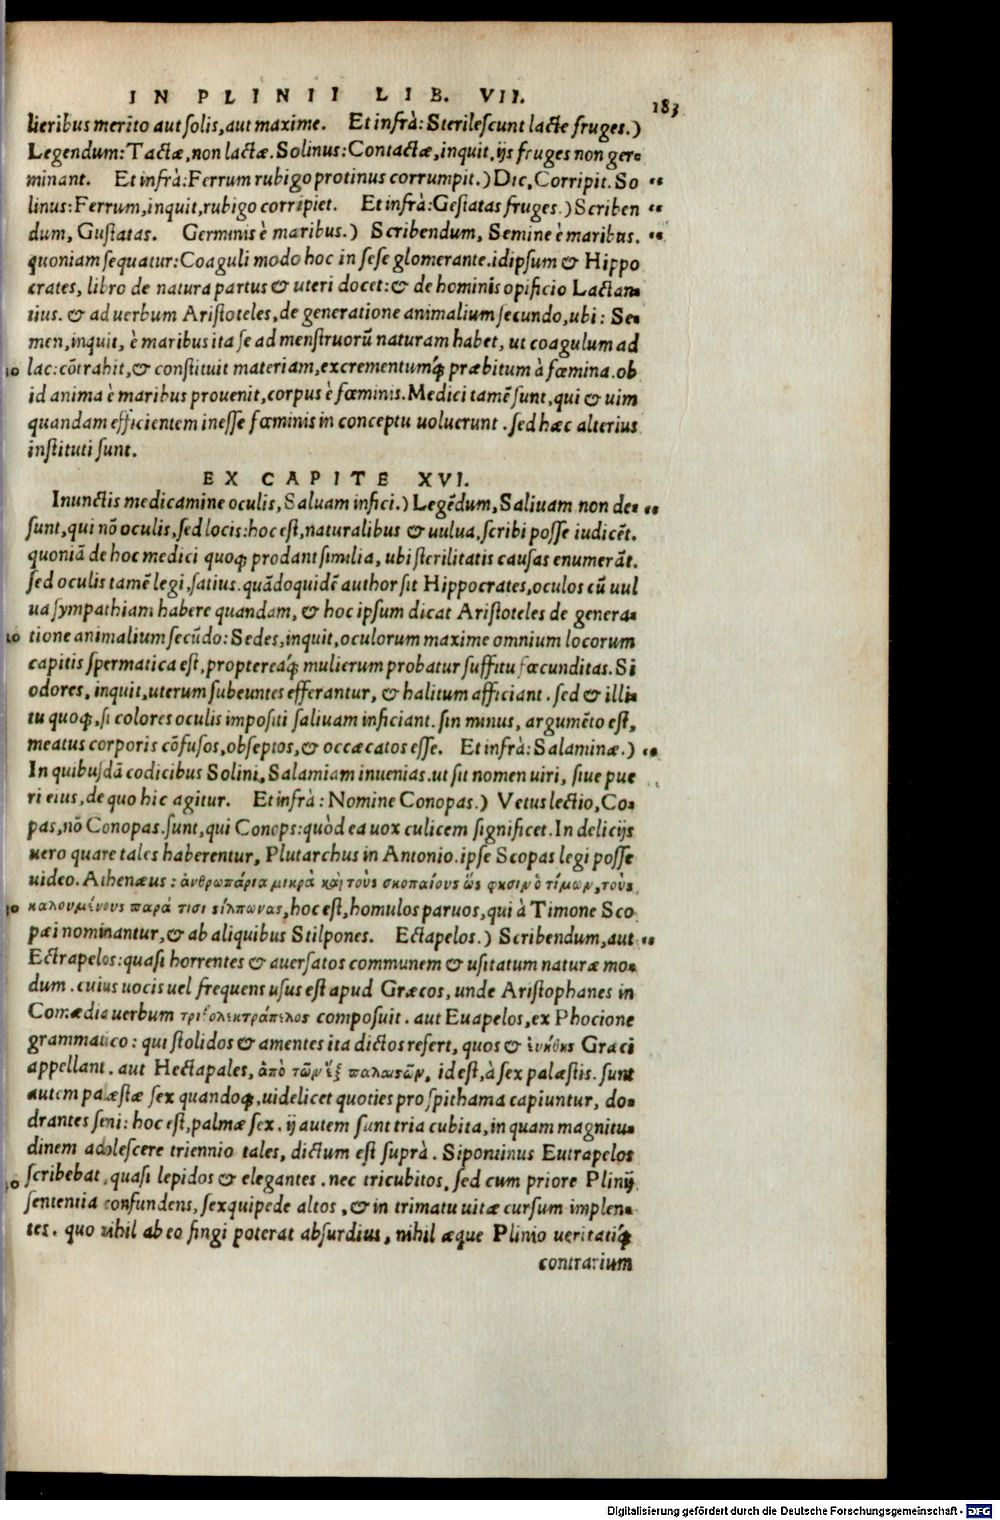 IN PLINII LIB. VII.
183
lieribus merito aut solis, aut maxime. Et infrà: Sterilescunt lacte fruges.)
Legendum: Tactæ, non lactæ. Solinus: Contactæ, inquit, ijs fruges non ger=
minant. Et infrà: Ferrum rubigo protinus corrumpit.) Dic, Corripit. So
linus: Ferrum, inquit, rubigo corripiet. Et infrà: Gestatas fruges.) Scriben
dum, Gustatas. Germinis è maribus.) Scribendum, Semine è maribus.
quoniam sequatur: Coaguli modo hoc in sese glomerante. idipsum & Hippo
crates, libro de natura partus & uteri docet: & de hominis opificio Lactan=
tius. & ad uerbum Aristoteles, de generatione animalium secundo, ubi: Se=
men, inquit, è maribus ita se ad menstruorũ naturam habet, ut coagulum ad
10 lac: cõtrahit, & constituit materiam, excrementumq́; præbitum à fœmina. ob
id anima è maribus prouenit, corpus è fœminis. Medici tamẽ sunt, qui & uim
quandam efficientem inesse fœminis in conceptu uoluerunt. sed hæc alterius
instituti sunt.
EX CAPITE XVI.
Inunctis medicamine oculis, Saluam infici.) Legẽdum, Saliuam non de=
sunt, qui nõ oculis, sed locis: hoc est, naturalibus & uulua, scribi posse iudicẽt.
quoniã de hoc medici quoq; prodant similia, ubi sterilitatis causas enumerãt.
sed oculis tamẽ legi, satius. quãdoquidẽ author sit Hippocrates, oculos cũ uul
ua sympathiam habere quandam, & hoc ipsum dicat Aristoteles de genera=
20 tione animalium secũdo: Sedes, inquit, oculorum maxime omnium locorum
capitis spermatica est, proptereaq́; mulierum probatur suffitu fœcunditas. Si
odores, inquit, uterum subeuntes efferantur, & halitum afficiant. sed & illi=
tu quoq;, si colores oculis impositi saliuam inficiant. sin minus, argumẽto est,
meatus corporis cõfusos, obseptos, & occæcatos esse. Et infrà: Salaminæ.)
In quibusdã codicibus Solini, Salamiam inuenias. ut sit nomen uiri, siue pue
ri eius, de quo hic agitur. Et infrà: Nomine Conopas.) Vetus lectio, Co=
pas, nõ Conopas. sunt, qui Conops: quòd ea uox culicem significet. In delicijs
uero quare tales haberentur, Plutarchus in Antonio. ipse Scopas legi posse
uideo. Athenæus: ἀνθρωπάρια μικρὰ καὶ τοὺς σκοπαίους ὥς φησιν ὁ τίμων, τοὺς
30 καλουμένους παρά τισι σίλπωνας, hoc est, homulos paruos, qui à Timone Sco
pæi nominantur, & ab aliquibus Stilpones. Ectapelos.) Scribendum, aut
Ectrapelos: quasi horrentes & auersatos communem & usitatum naturæ mo=
dum. cuius uocis uel frequens usus est apud Græcos, unde Aristophanes in
Comædia uerbum composuit. aut Euapelos, ex Phocione
grammatico: qui stolidos & amentes ita dictos refert, quos & Græci
appellant. aut Hectapales, ἀπὸ τῶν ἓξ παλαιστῶν, id est, à sex palæstis. sunt
autem palæstæ sex quandoq;, uidelicet quoties pro spithama capiuntur, do=
drantes seni: hoc est, palmæ sex. ij autem sunt tria cubita, in quam magnitu=
dinem adolescere triennio tales, dictum est suprà. Sipontinus Eutrapelos
40 scribebat, quasi lepidos & elegantes. nec tricubitos, sed cum priore Plinij
sententia confundens, sexquipede altos, & in trimatu uitæ cursum implen=
tes. quo nihil ab eo fingi poterat absurdius, nihil æque Plinio ueritatiq́;
contrarium
Digitalisierung gefördert durch die Deutsche Forschungsgemeinschaft - DFG